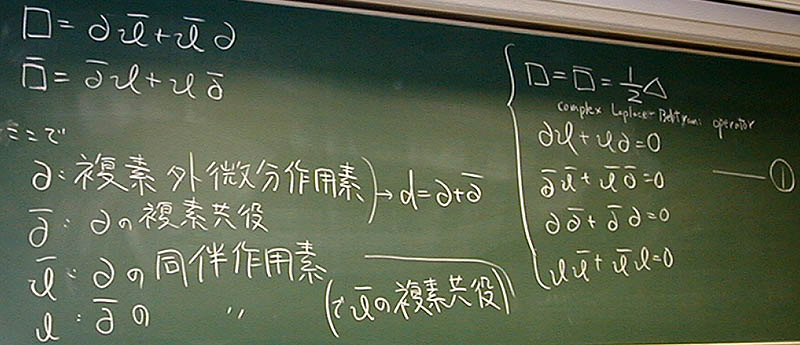 □ = ∂ϑ̄ + ϑ̄∂
□̄ = ∂̄ϑ + ϑ∂̄
ここで
∂: 複素外微分作用素 → d = ∂ + ∂̄
∂̄: ∂の複素共役
ϑ̄: ∂の同伴作用素
ϑ: ∂̄の 〃 (でϑ̄の複素共役)
□ = □̄ = 1/2 △
complex Laplace-Beltrami operator
∂ϑ + ϑ∂ = 0
∂̄ϑ̄ + ϑ̄∂̄ = 0 ①
∂∂̄ + ∂̄∂ = 0
ϑϑ̄ + ϑ̄ϑ = 0